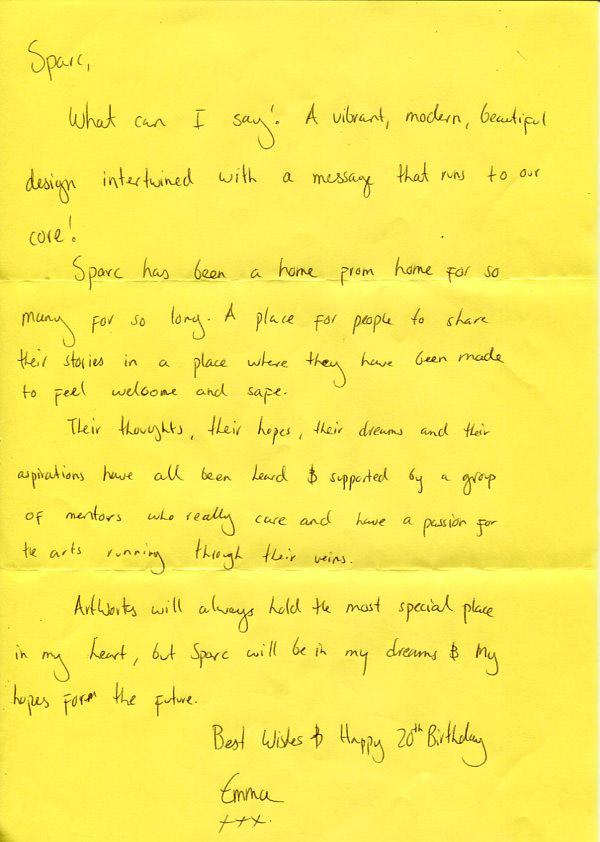 Sparc,
What can I say! A vibrant, modern, beautiful
design intertwined with a message that runs to our
core!
Sparc has been a home from home for so
many for so long. A place for people to share
their stories in a place where they have been made
to feel welcome and safe.
Their thoughts, their hopes, their dreams and their
aspirations have all been heard & supported by a group
of mentors who really care and have a passion for
the arts running through their veins.
ArtWorks will always hold the most special place
in my heart, but Sparc will be in my dreams & my
hopes for the future.
Best Wishes & Happy 20th Birthday
Emma
xxx.